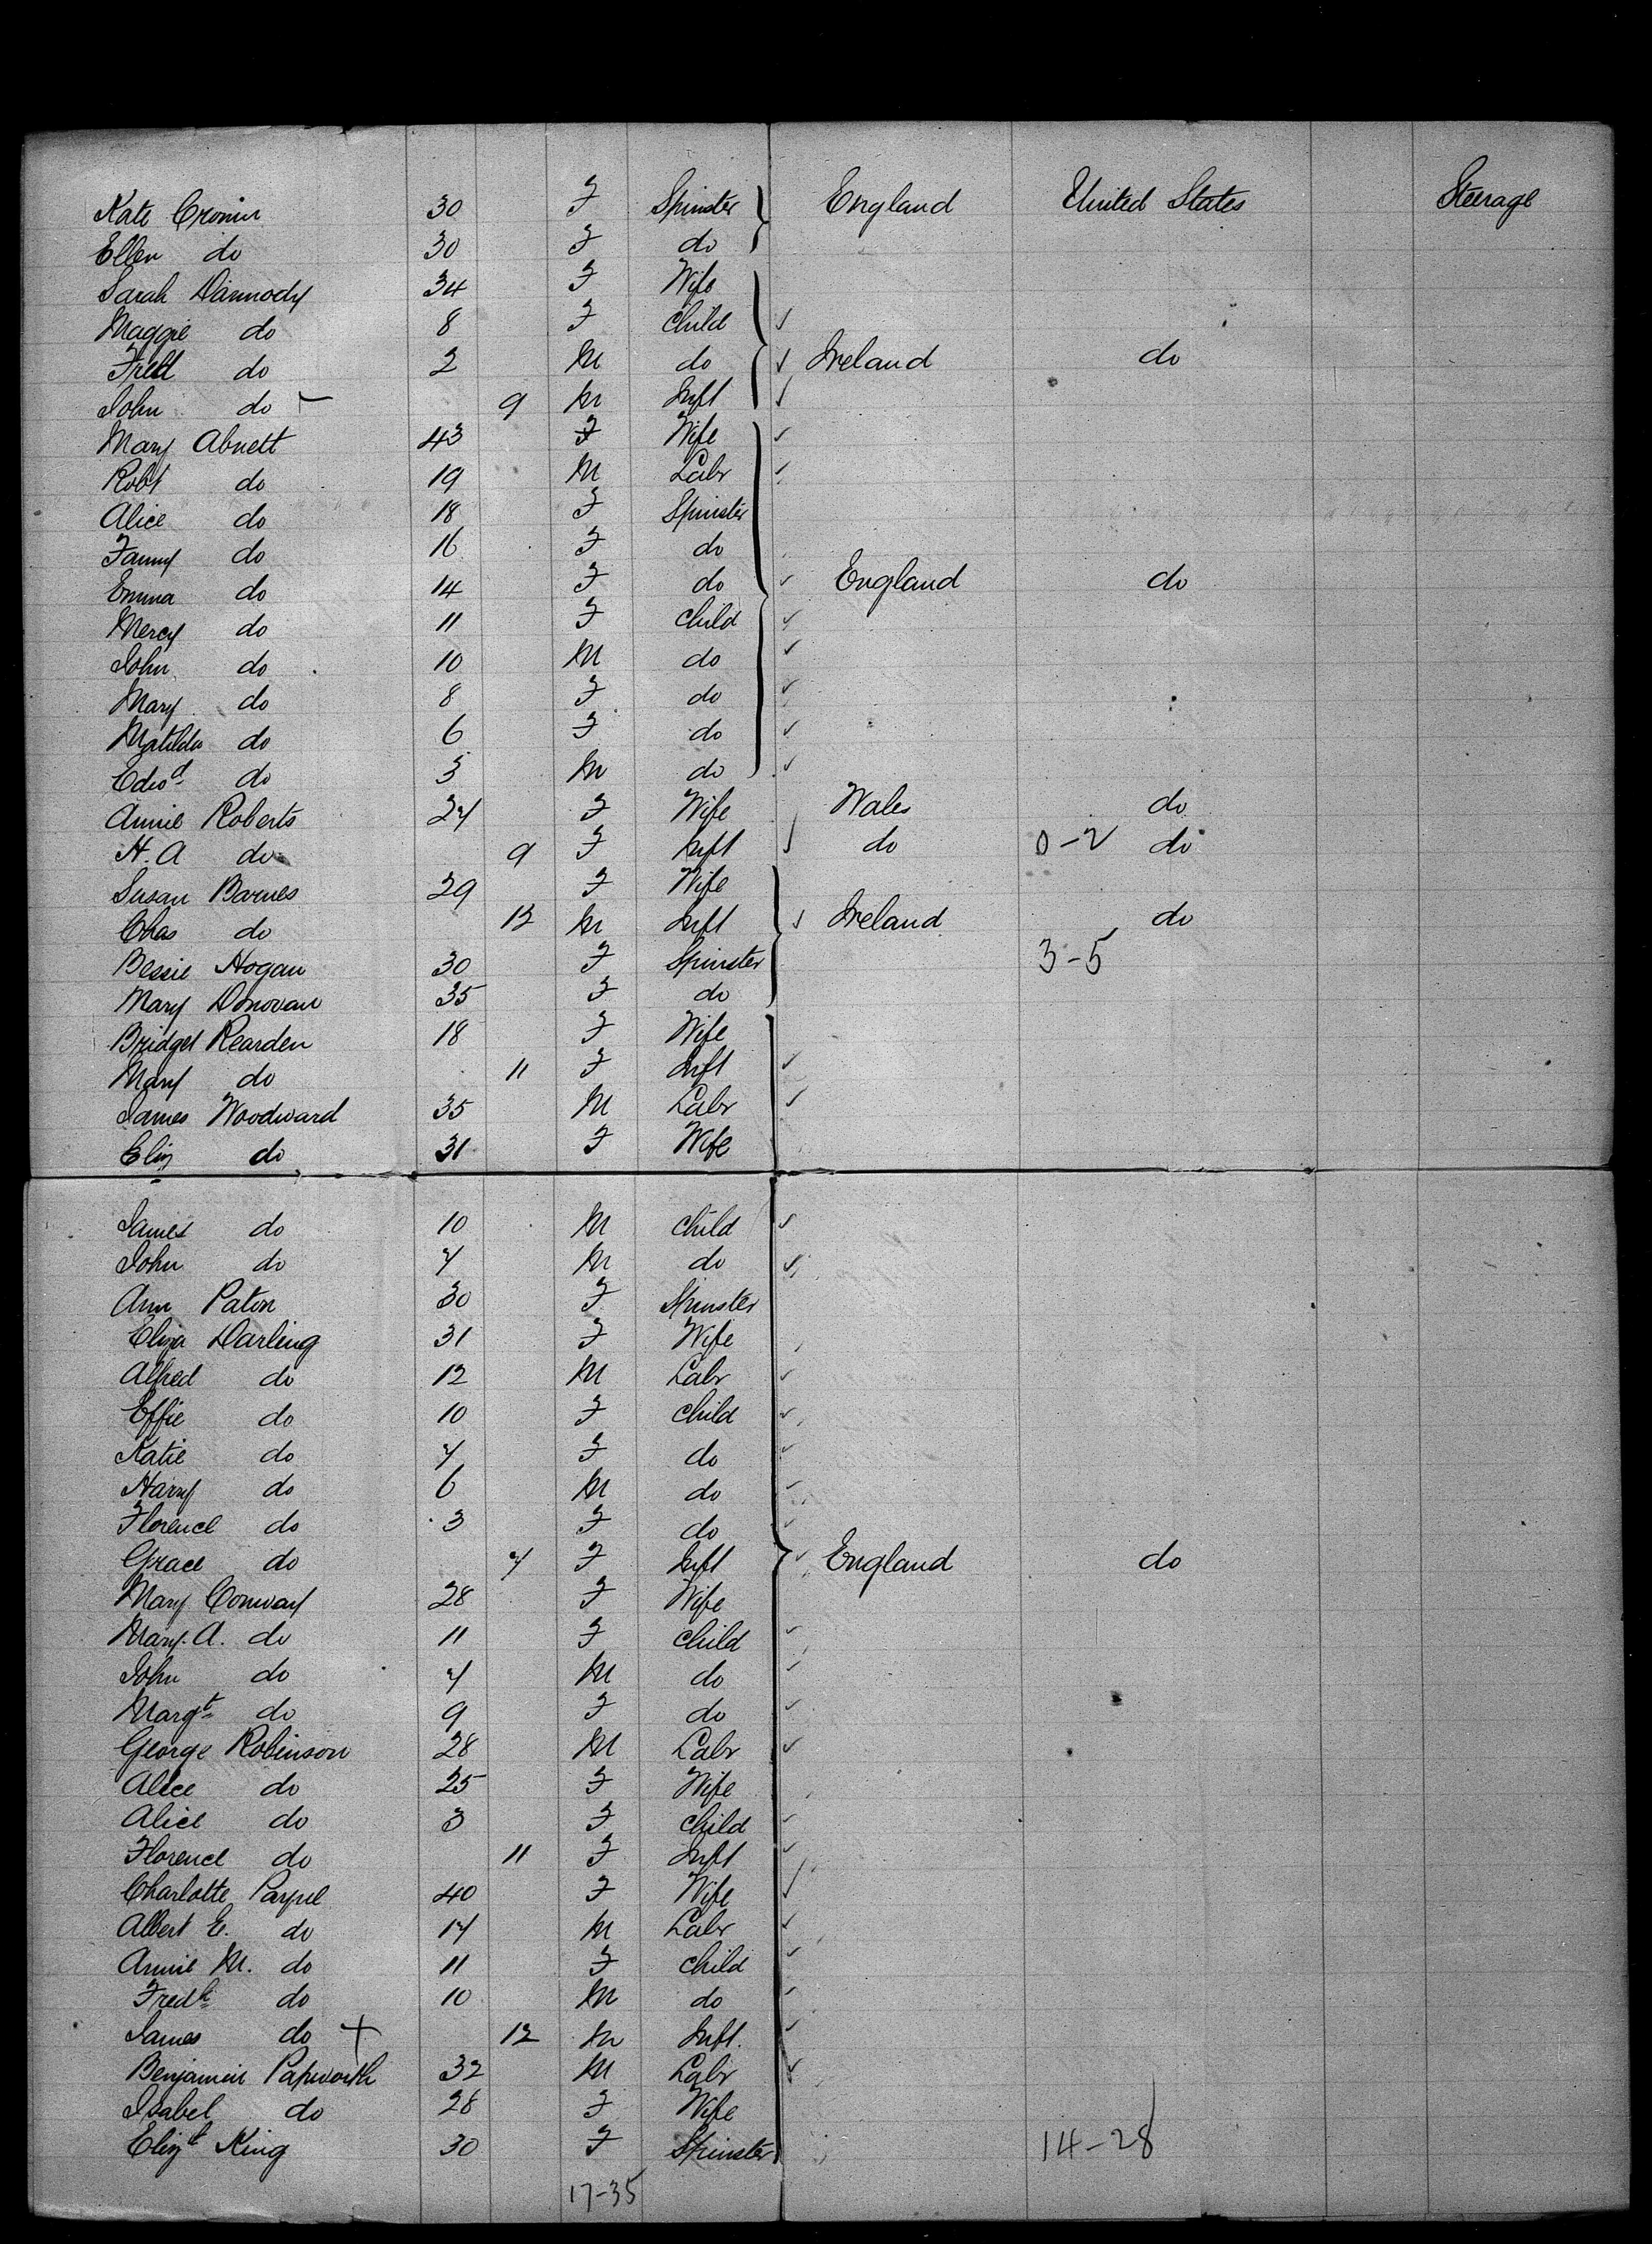 Kate Cronin 30 F Spinster England United States Steerage
Ellen do 30 F do
Sarah Dannody 34 F Wife
Maggie do 8 F Child
Fred do 2 M do Ireland do
John do 9 M Inft
Mary Abnett 43 F Wife
Robt do 19 M Labr
Alice do 18 F Spinster
Fanny do 16 F do
Emma do 14 F do England do
Mercy do 11 F Child
John do 10 M do
Mary do 8 F do
Matilda do 6 F do
Edwd do 3 M do
Annie Roberts 27 F Wife Wales do
H. A do 9 F Inft do 0-2 do
Susan Barnes 29 F Wife
Chas do 12 M Inft Ireland do
Bessie Hogan 30 F Spinster 3-5
Mary Donovan 35 F do
Bridget Rearden 18 F Wife
Mary do 11 F Inft
James Woodward 35 M Labr
Eliz do 31 F Wife
James do 10 M Child
John do 7 M do
Ann Paton 30 F Spinster
Eliza Darling 31 F Wife
Alfred do 12 M Labr
Effie do 10 F Child
Katie do 7 F do
Harry do 6 M do
Florence do 3 F do
Grace do 7 F Inft England do
Mary Conway 28 F Wife
Mary. A. do 11 F Child
John do 7 M do
Margt do 9 F do
George Robinson 28 M Labr
Alice do 25 F Wife
Alice do 3 F Child
Florence do 11 F Inft
Charlotte 40 F Wife
Albert E. do 17 M Labr
Annie M. do 11 F Child
Fredk do 10 M do
James do + 12 M Inft.
Benjamin Papworth 32 M Labr
Isabel do 28 F Wife
Elizt King 30 F Spinster 14-28
17-35